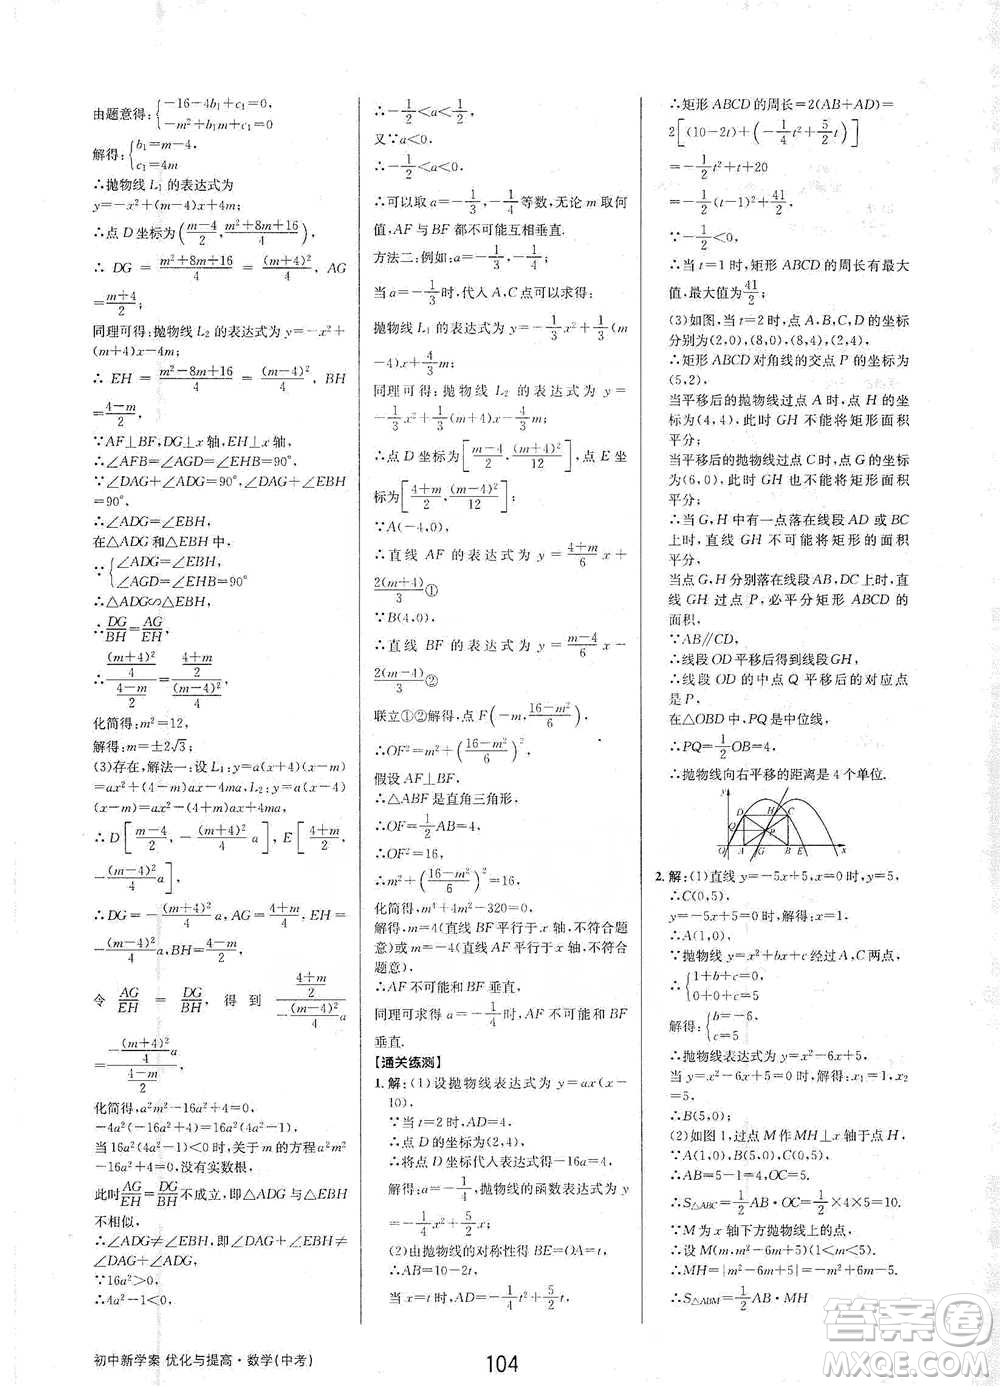 由题意得:{-16-4b₁+c₁=0,
-m²+b₁m+c₁=0,
解得:{b₁=m-4,
c₁=4m
∴抛物线 L₁ 的表达式为
y=-x²+(m-4)x+4m;
∴点 D 坐标为((m-4)/2, (m²+8m+16)/4)
∴ DG = (m²+8m+16)/4 = (m+4)²/4, AG
=(m+4)/2;
同理可得:抛物线 L₂ 的表达式为 y=-x²+
(m+4)x-4m;
∴ EH = (m²-8m+16)/4 = (m-4)²/4, BH =
(4-m)/2;
∵AF⊥BF,DG⊥x 轴,EH⊥x 轴;
∴∠AFB=∠AGD=∠EHB=90°,
∵∠DAG+∠ADG=∠DAG+∠EBH=90°,
∴∠ADG=∠EBH,
在△ADG 和△EBH 中,
∵{∠ADG=∠EBH
∠AGD=∠EHB=90°
∴△ADG∽△EBH,
∴DG/BH=AG/EH,
∴((m+4)²/4)/((4-m)/2)=((4+m)/2)/((m-4)²/4),
化简得:m²=12,
解得:m=±2√3;
(3)存在,解法一:设 L₁:y=a(x+4)(x-m)
=ax²+(4-m)ax-4ma,L₂:y=a(x-4)(x
-m)=ax²-(4+m)ax+4ma,
∴D[(m-4)/2, -(m+4)²/4 a], E[(m+4)/2,
-(m-4)²/4 a]
∴ DG = -(m+4)²/4 a, AG = (m+4)/2, EH =
-(m-4)²/4 a, BH=(4-m)/2,
令 AG/EH = DG/BH, 得到 ((m+4)/2)/(-(m-4)²/4 a)
=(-(m+4)²/4 a)/((4-m)/2)
化简得,a²m²-16a²+4=0,
-4a²(-16a²+4)=16a²(4a²-1),
当 16a²(4a²-1)<0 时,关于 m 的方程 a²m²
-16a²+4=0,没有实数根.
此时AG/EH=DG/BH不成立,即△ADG 与△EBH
不相似,
∴∠ADG≠∠EBH,即∠ADG+∠EBH≠
∠ADG+∠DAG=90°
∵16a²>0,
∴4a²-1<0,
∴-1/2<a<1/2,
又∵a<0,
∴-1/2<a<0,
∴可以取 a=-1/3,-1/4等数,无论 m 取何
值,AF 与 BF 都不可能互相垂直.
方法二:例如:a=-1/3,-1/4,
当 a=-1/3时,代入 A、C 点可以求得:
抛物线 L₁ 的表达式为 y=-1/3x²+1/3(m
-4)x+4/3m;
同理可得:抛物线 L₂ 的表达式为 y=
-1/3x²+1/3(m+4)x-4/3m,
∴点 D 坐标为[(m-4)/2, (m+4)²/12],点 E 坐
标为[(4+m)/2, (m-4)²/12];
∵A(-4,0),
∴直线 AF 的表达式为 y=(4+m)/6 x+
2(m+4)/3①
∵B(4,0),
∴直线 BF 的表达式为 y=(m-4)/6 x-
2(m-4)/3②
联立①②解得,点 F(-m,(16-m²)/6),
∴OF²=m²+((16-m²)/6)²,
假设 AF⊥BF,
∴△ABF 是直角三角形,
∴OF=1/2AB=4,
∴OF²=16,
∴m²+((16-m²)/6)²=16,
化简得,m⁴+4m²-320=0,
解得,m=4(直线 BF 平行于 x 轴,不符合题
意)或 m=-4(直线 AF 平行于 x 轴,不符合
题意),
∴AF 不可能和 BF 垂直,
同理可求得 a=-1/4时,AF 不可能和 BF
垂直.
【通关练测】
1.解:(1)设抛物线表达式为 y=ax(x-
10),
∵当 t=2 时,AD=4;
∴点 D 的坐标为(2,4),
∴将点 D 坐标代入表达式得-16a=4,
解得:a=-1/4,抛物线的函数表达式为
y=-1/4x²+5/2x;
(2)由抛物线的对称性得 BE=OA=t,
∴AB=10-2t,
当 x=t 时,AD=-1/4t²+5/2t,
∴矩形 ABCD 的周长=2(AB+AD)=
2[(10-2t)+(-1/4t²+5/2t)]
=-1/2t²+t+20
=-1/2(t-1)²+41/2,
∵-1/2<0,
∴当 t=1 时,矩形 ABCD 的周长有最大
值,最大值为41/2;
(3)如图,当 t=2 时,点 A、B、C、D 的坐标
分别为(2,0),(8,0),(8,4),(2,4),
∴矩形 ABCD 对角线的交点 P 的坐标为
(5,2),
当平移后的抛物线过点 A 时,点 H 的坐
标为(4,4),此时 GH 不能将矩形面积
平分;
当平移后的抛物线过点 C 时,点 G 的坐标为
(6,0),此时 GH 也不能将矩形面积
平分;
∴当 G、H 中有一点落在线段 AD 或 BC
上时,直线 GH 不可能将矩形的面积
平分,
当点 G、H 分别落在线段 AB、DC 上时,直
线 GH 过点 P,必平分矩形 ABCD 的
面积,
∵AB∥CD,
∴线段 OD 平移后得到线段GH,
∴线段 OD 的中点 Q 平移后的对应点
是 P,
在△OBD 中,PQ 是中位线,
∴PQ=1/2OB=4,
∴抛物线向右平移的距离是 4 个单位.
y D H C Q P O A G B E x
2.解:(1)直线 y=-5x+5,x=0 时,y=5
∴C(0,5),
y=-5x+5=0 时,解得:x=1,
∴A(1,0),
∵抛物线 y=x²+bx+c 过 A,C 两点,
∴{1+b+c=0
0+0+c=5
解得:{b=-6,
c=5
∴抛物线表达式为 y=x²-6x+5,
当 y=x²-6x+5=0 时,解得:x₁=1,x₂
=5,
∴B(5,0),
(2)如图 1,过点 M 作MH⊥x 轴于点 H,
∵A(1,0),B(5,0),C(0,5),
∴AB=5-1=4,OC=5,
∴S△ABC=1/2AB·OC=1/2×4×5=10.
∵M 为 x 轴下方抛物线上的点,
∴设 M(m,m²-6m+5)(1<m<5),
∴MH=|m²-6m+5|=-m²+6m-5,
∴S△ABM=1/2AB·MH
初中新学案 优化与提高·数学(中考)
104
作业精灵